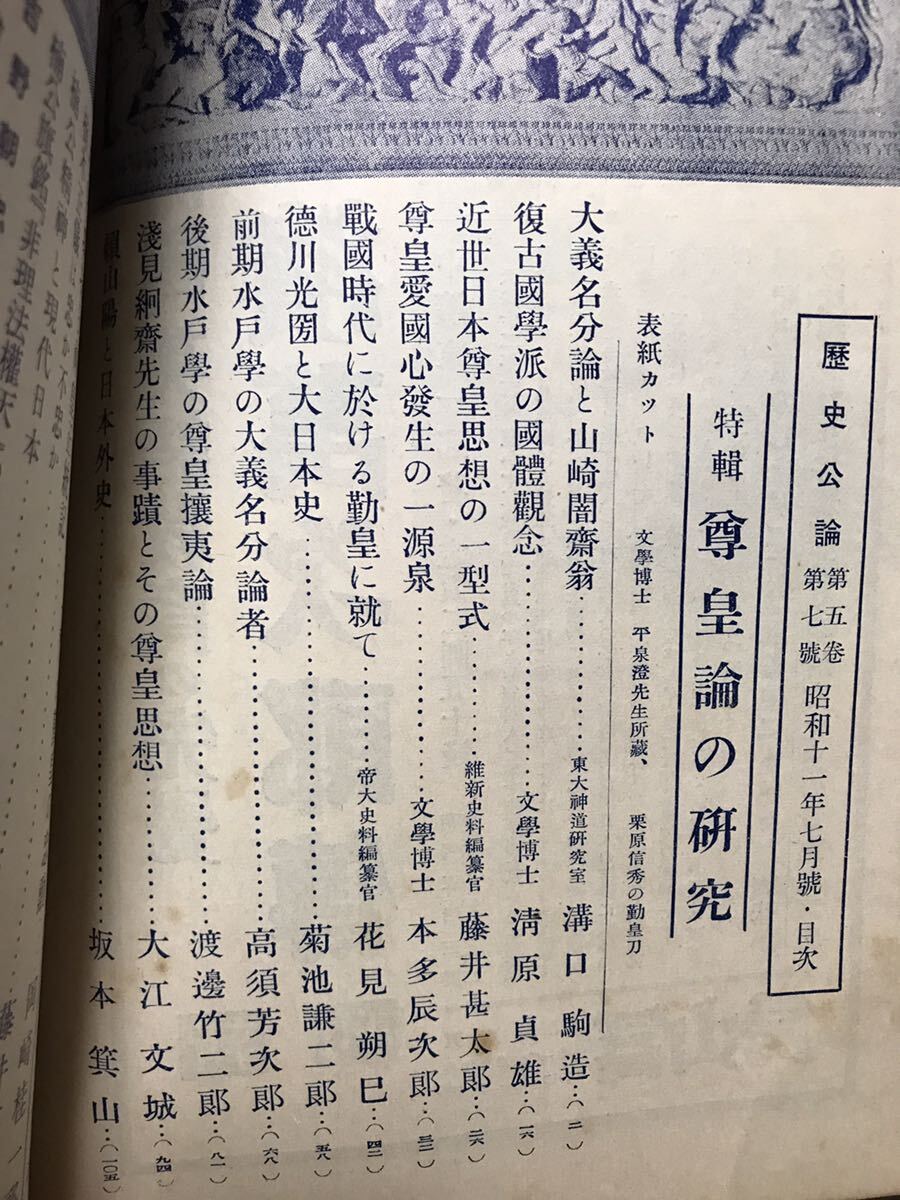 歷史公論 第五卷 第七號 昭和十一年七月號・目次
特輯 尊皇論の硏究
表紙カット 文學博士 平泉澄先生所藏、 栗原信秀の勤皇刀
大義名分論と山崎闇齋翁………東大神道硏究室 溝口駒造…(二)
復古國學派の國體觀念………文學博士 淸原貞雄…(一六)
近世日本尊皇思想の一型式………維新史料編纂官 藤井甚太郞…(二六)
尊皇愛國心發生の一源泉………文學博士 本多辰次郞…(三二)
戰國時代に於ける勤皇に就て………帝大史料編纂官 花見朔巳…(四二)
德川光圀と大日本史………菊池謙二郞…(五八)
前期水戶學の大義名分論者………高須芳次郞…(六八)
後期水戶學の尊皇攘夷論………渡邊竹二郞…(八一)
淺見絅齋先生の事蹟とその尊皇思想………大江文城…(九四)
賴山陽と日本外史………坂本箕山…(一〇五)
楠公精神と現代日本
楠公旗銘『非理法權天